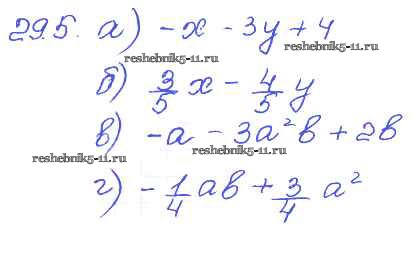 29.5. а) -x - 3y + 4
reshebnik5-11.ru
reshebnik5-11.ru
б) 3/5 x - 4/5 y
в) -a - 3a²b + 2b
reshebnik5-11.ru
reshebnik5-11.ru
г) - 1/4 ab + 3/4 a²